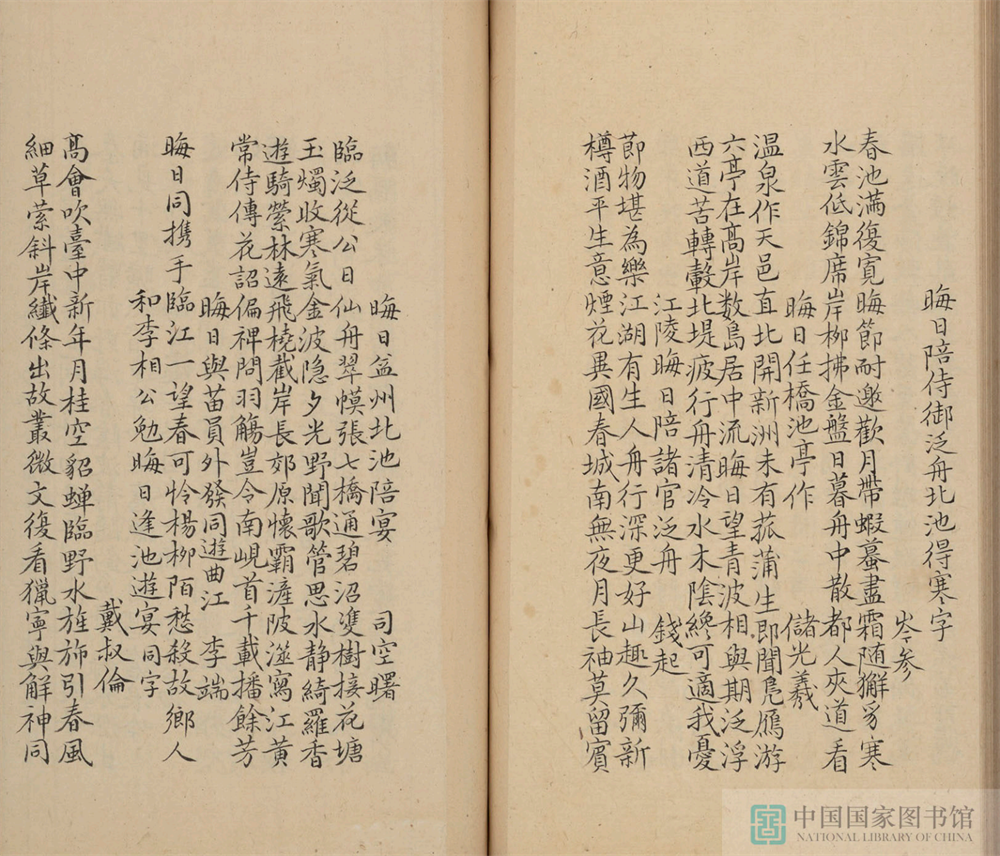 晦日陪侍御泛舟北池得寒字
岑参
春池满復寛晦節耐邀歡月帶蝦蟇盡霜随獬豸寒
水雲低錦席岸柳拂金盤日暮舟中散都人夾道看
晦日任橋池亭作
儲光羲
温泉作天邑直北開新洲未有菰蒲生即聞鳬鴈游
六亭在髙岸数島居中流晦日望青波相與期泛浮
西道苦轉轂北堤疲行舟清冷水木陰纔可適我憂
江陵晦日陪諸官泛舟
錢起
節物堪為樂江湖有生人舟行深更好山趣久彌新
樽酒平生意煙花異國春城南無夜月長袖莫留賓
晦日益州北池陪宴
司空曙
臨泛從公日仙舟翠幙張七橋通碧沼雙樹接花塘
玉燭收寒氣金波隐夕光野聞歌管思水静綺羅香
遊騎縈林遠飛橈截岸長郊原懷灞滻陂澨寫江黄
常侍傳花詔偏裨問羽觴豈令南峴首千載播餘芳
晦日與苗員外發同遊曲江
李端
晦日同携手臨江一望春可怜楊柳陌愁殺故鄉人
和李相公勉晦日逢池遊宴同字
戴叔倫
髙會吹臺中新年月桂空貂蝉臨野水旌斾引春風
細草縈斜岸纎條出故叢微文復看獵寧與解神同
中国国家图书馆
NATIONAL LIBRARY OF CHINA